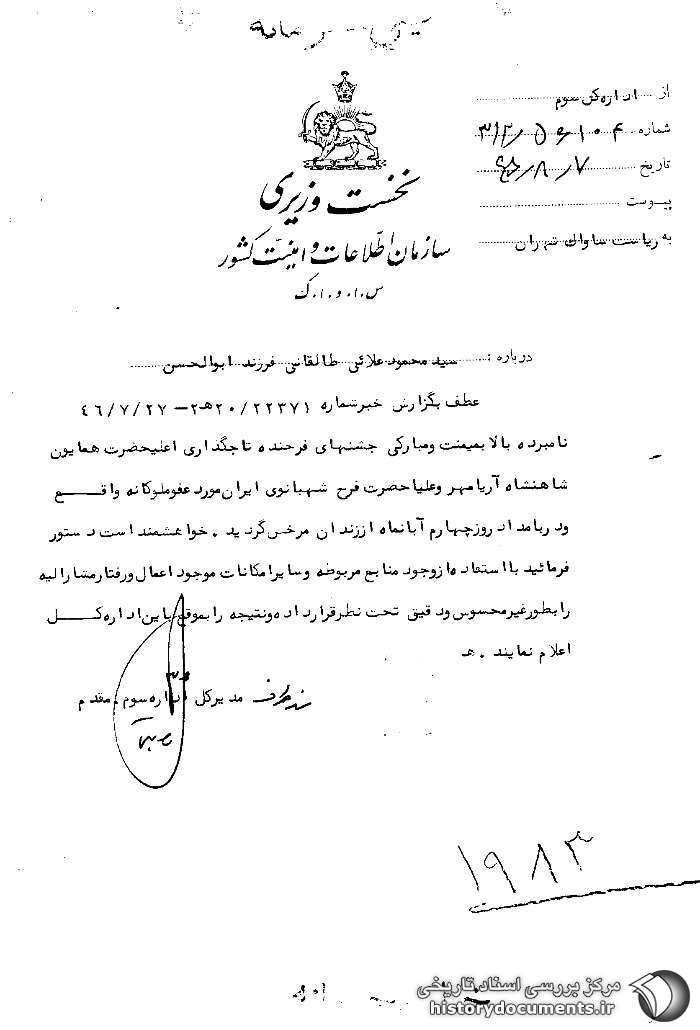 از اداره کل سوم
شماره ۳۱۲/۵۶۱۰۴
تاریخ ۴۶/۸/۷
پیوست
به ریاست ساواک تهران
نخست وزیری
سازمان اطلاعات و امنیت کشور
س.ا.و.ا.ک
درباره : سید محمود علائی طالقانی فرزند ابوالحسن
عطف بگزارش خبر شماره ۲۰/۲۲۳۷۱ھ۲ – ۴۶/۷/۲۷
نامبرده بالا بمیمنت و مبارکی جشنهای فرخنده تاجگذاری اعلیحضرت همایون
شاهنشاه آریامهر و علیاحضرت فرح شهبانوی ایران مورد عفو ملوکانه واقـــع
و در بامداد روز چهارم آبانماه از زندان مرخص گردید . خواهشمند است دستور
فرمائید با استفاده از وجود منابع مربوطه و سایر امکانات موجود اعمال و رفتار مشارالیه
را بطور غیر محسوس و دقیق تحت نظر قرار داده و نتیجه را بموقع باین اداره کـــل
اعلام نمایند . هـ
مدیر کل اداره سوم . مقدم
۱۹۸۳
مرکز بررسی اسناد تاریخی
historydocuments.ir